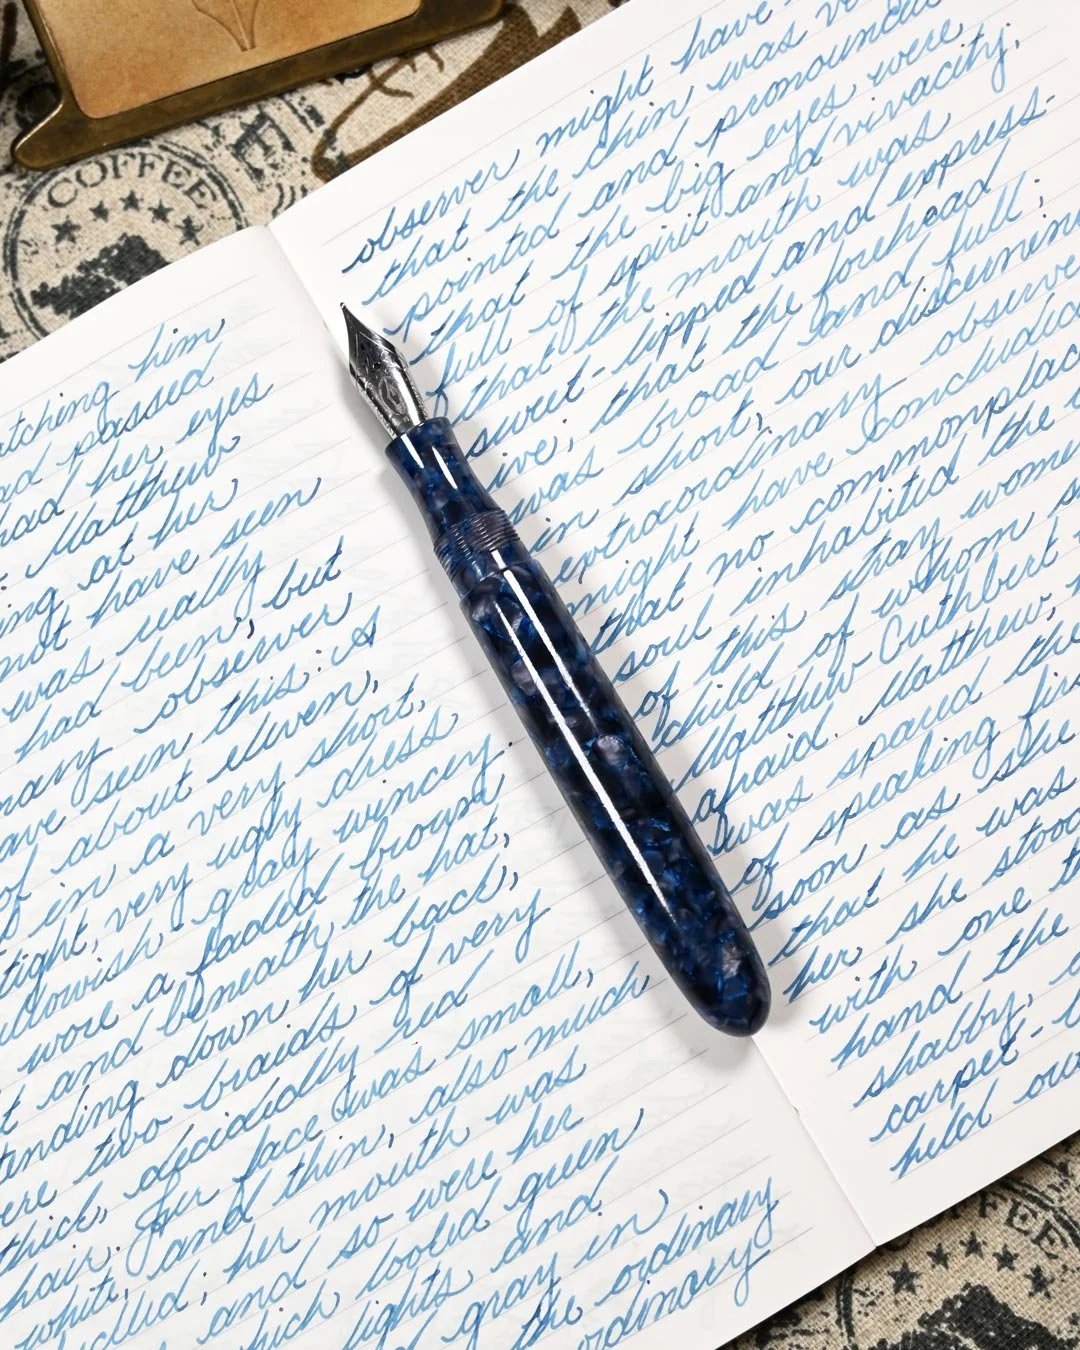 COFFEE
atching him
ad passed
had her eyes
. Matthew
ing at her
not have seen
was really
had been, but
nary observer
ave seen this: A
of about eleven,
d in a very short,
tight, very ugly dress
ellowish-gray wincey.
wore a faded brown
t and beneath the hat,
tending down her back,
ere two braids of very
thick, decidedly red
hair. Her face was small,
white, and thin, also much
ckled; her mouth was
and so were her
hich looked green
lights and
d gray in
the ordinary
ordinary
observer might have
that the chin was ve
pointed and pronounced
that the big eyes were
full of spirit and vivacity;
that the mouth was
sweet-lipped and express-
ive, that the forehead
was broad and full;
in short, our discerning
extraordinary observe
might have concluded
that no commonplac
soul inhabited the
of this stray wome
child of whom s
Matthew Cuthbert
afraid. Matthew,
was spared the
of speaking firs
soon as she
that he was
her, she stood
with one
hand the
shabby,
carpet-b
held ou
FEE